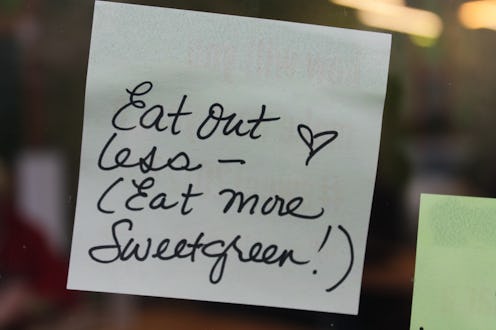 Eat Out ♡
less –
(Eat more
Sweetgreen!)